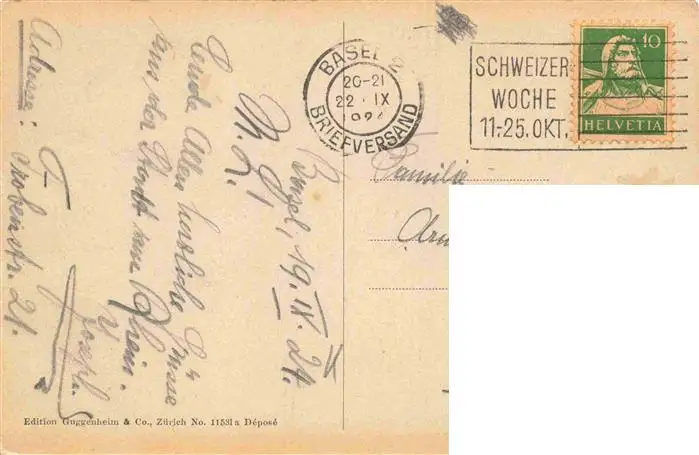 Basel, 19. IX. 24.
M. L.!
Sende Allen herzliche Grüsse
aus der Stadt am Rhein.
Joseph.
Adresse:
Frobenstr. 21.
BASEL 2
20-21
22. IX
192
BRIEFVERSAND
SCHWEIZER
WOCHE
11.-25. OKT.
10
HELVETIA
Familie
Edition Guggenheim & Co., Zürich No. 11531a Déposé